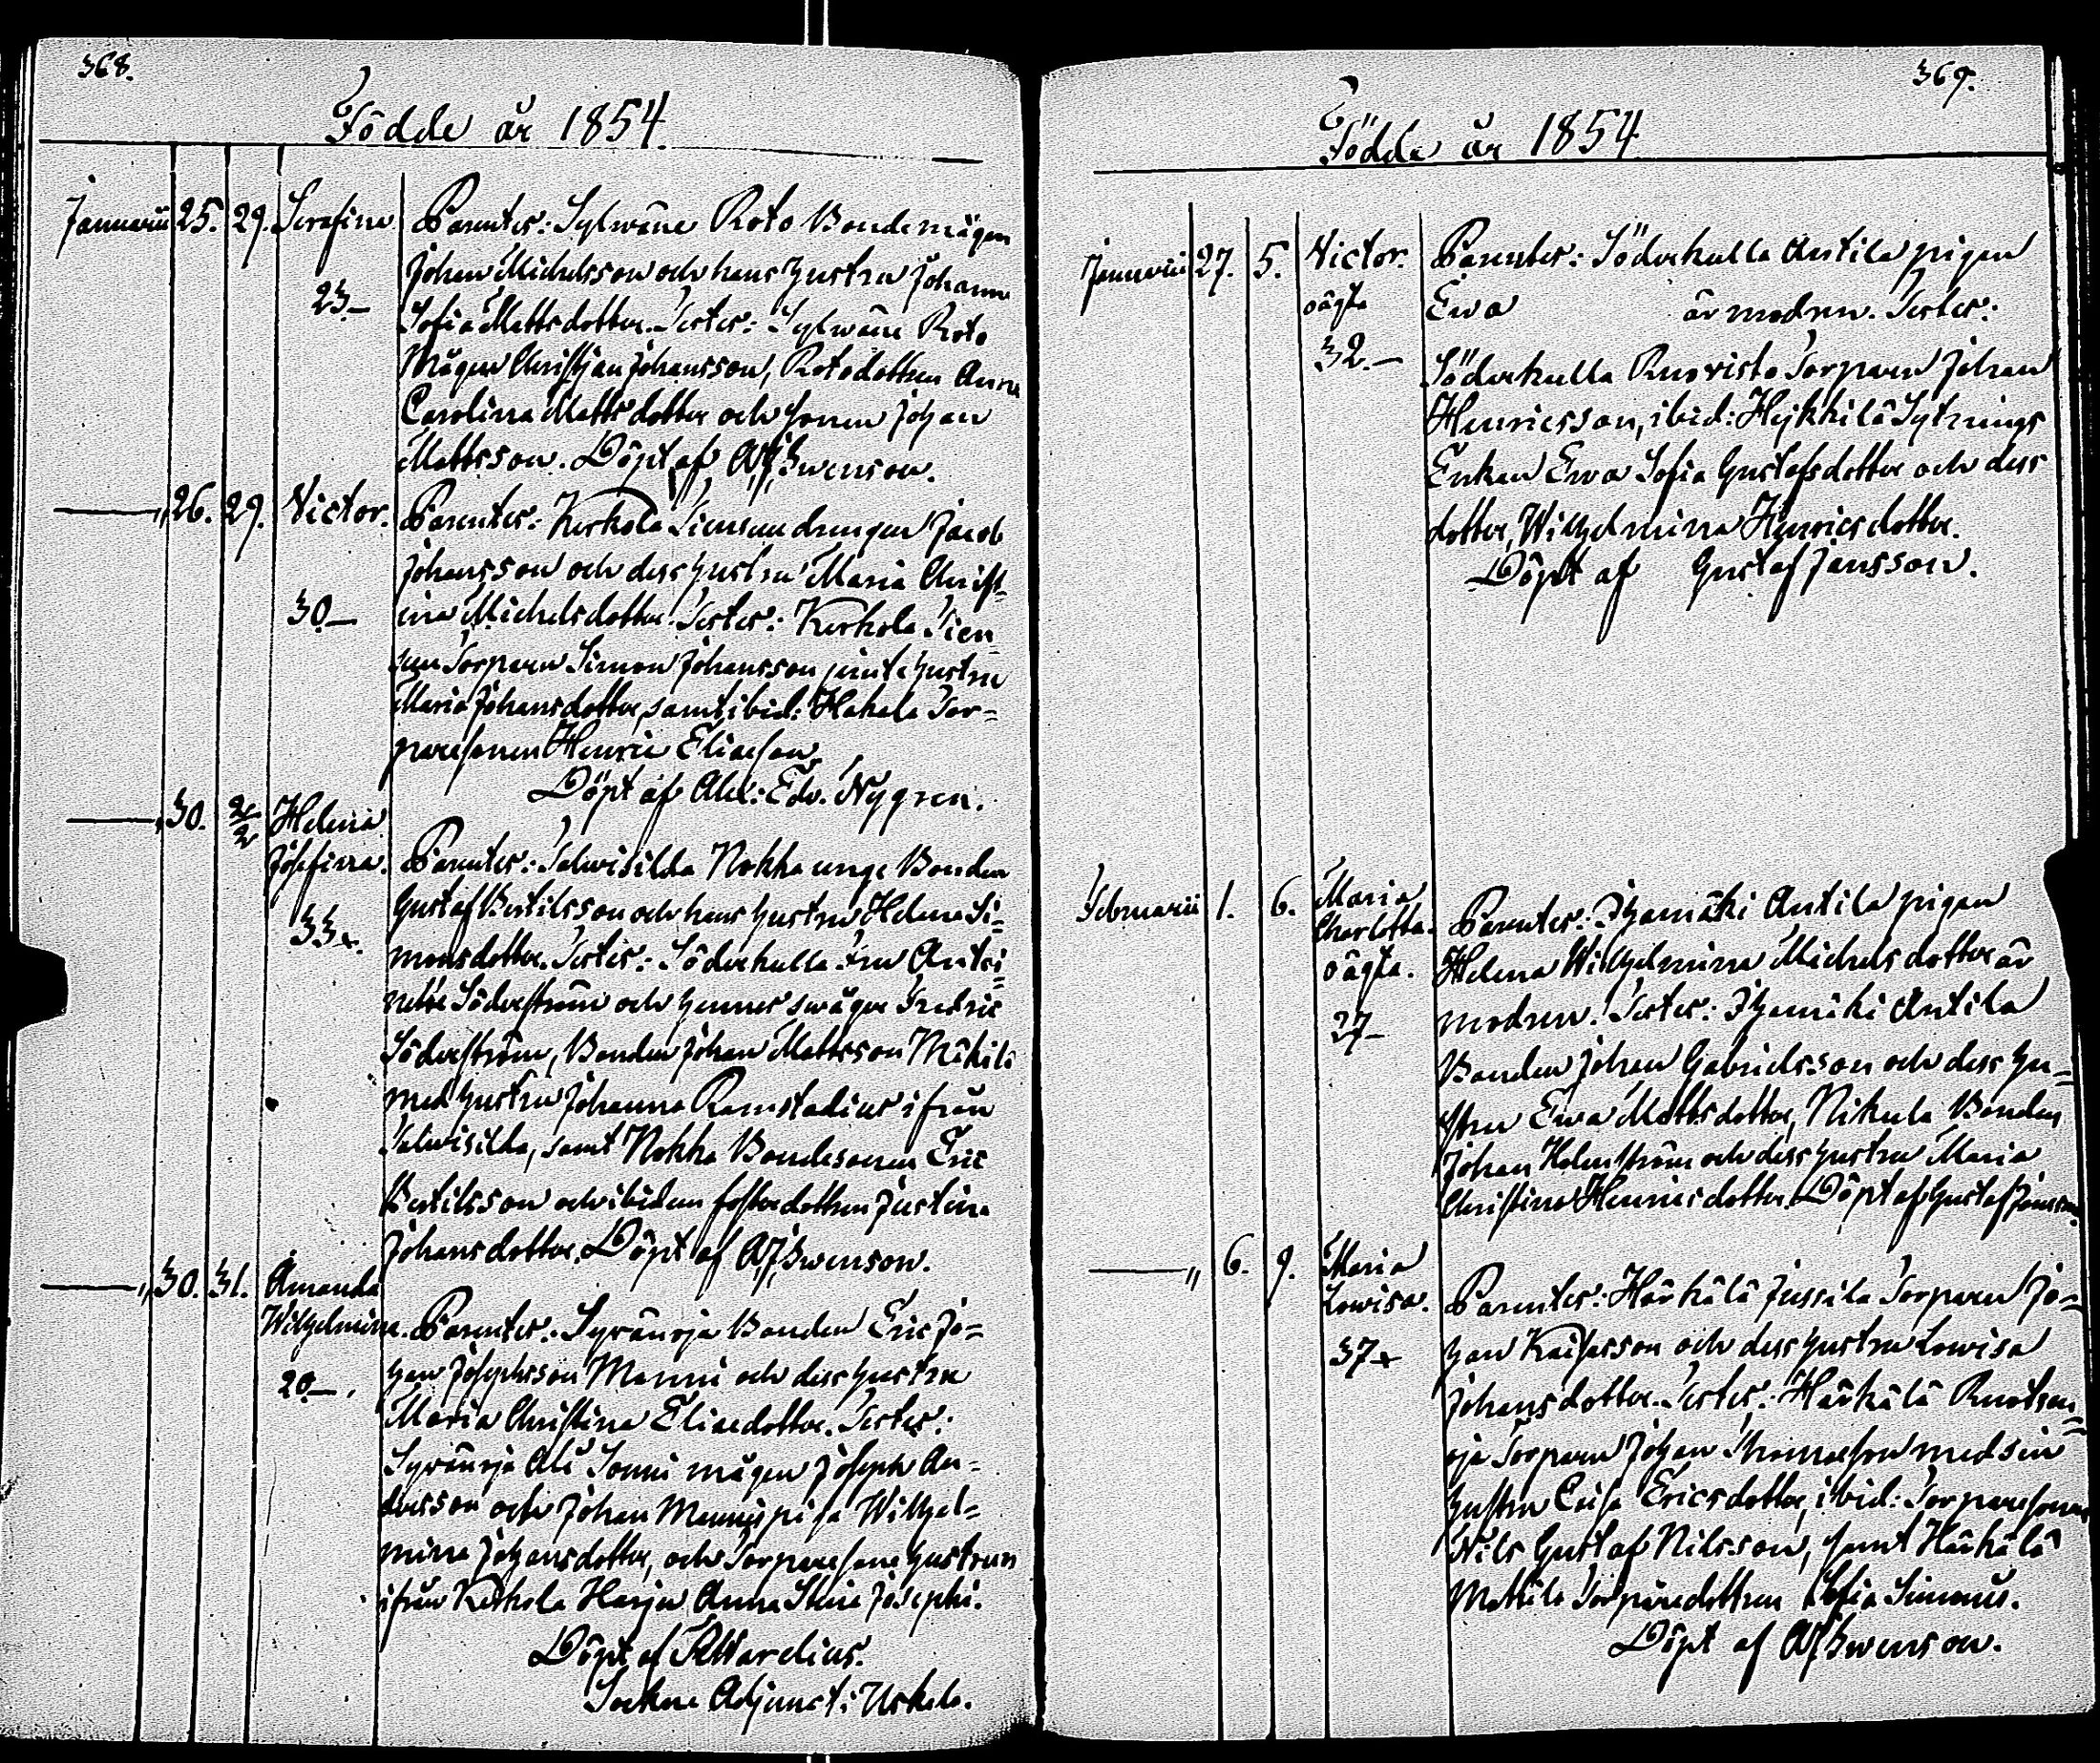 368.
Födde år 1854.
Januarii 25. 29. Serafina Parenter: Sylwäne Roto Bondemågen
Johan Michelsson och hans hustru Johanna
23.— Sofia Mattsdotter. Testes: Sylwäne Roto
Mågen Christjan Johansson, Rotodottren Anna
Carolina Mattsdotter och sonen Johan
Mattsson. Döpt af AfSwenson.
—„ 26. 29. Victor. Parenter: Kerkola drengen Jacob
Johansson och dess hustru Maria Christ-
30.— ina Michelsdotter. Testes: Kerkola
Torparen Simon Johansson jemte hustru
Maria Johansdotter, samt ibid: Hakala Tor-
paresonen Henric Eliaeson.
Döpt af Alex: Edv. Nygren.
—„ 30. 2/2 Helena
Josefina. Parenter: Salwisilda Nokka unge Bonden
Gustaf Bertilsson och hans hustru Helena Si-
33+. monsdotter. Testes: Söderkulla Fru Antoi-
nette Söderström och hennes swåger Fredric
Söderström, Bonden Johan Mattsson Mikilä
med hustru Johanna Ramstadius ifrån
Salwisilda, samt Nokka Bondesonen Eric
Bertilsson och ibidem fosterdottren Justina
Johansdotter. Döpt af AfSwenson.
—„ 30. 31. Amanda
Wilhelmina. Parenter: Syvänoja Bonden Eric Jo-
han Josephsson Manni och dess hustru
20.—. Maria Christina Eliaedotter. Testes:
Syvänoja Ali Sonni mågen Joseph An-
dersson och Johan Mannis piga Wilhel-
mina Johansdotter, och Torparesons hustrun
ifrån Kerkola Harju Anna Stina Josephi.
Döpt af Wardelius.
Sockne Adjunct i Uskela.
369.
Födde år 1854
Januarii 27. 5. Victor. Parenter: Söderkulla Antila pigan
oägta Ewa är modren. Testes:
32.— Söderkulla Ruovisto Torparen Johan
Henricsson, ibid: Heikkilä Sytnings
Enkan Ewa Sofia Gustafsdotter och dess
dotter, Wilhelmina Henricsdotter.
Döpt af Gustaf Jansson.
Februarii 1. 6. Maria
Charlotta. Parenter: Ihamäki Antila pigan
oägta. Helena Wilhelmina Michelsdotter är
27— modren. Testes: Ihamäki Antila
Bonden Johan Gabrielsson och dess hu-
stru Ewa Mattsdotter, Nikula Bonden
Johan Holmström och dess hustru Maria
Christina Henricsdotter. Döpt af Gustaf Jansson
—„ 6. 9. Maria
Lowisa. Parenter: Härkälä Jussila Torparen Jo-
37+ han Kaisasson och dess hustru Lowisa
Johansdotter. Testes: Härkälä Ruotsen-
oja Torparen Johan Thomaeson med sin
hustru Caisa Ericsdotter, ibid: Torparesonen
Nils Gustaf Nilsson, samt Härkälä
Mattila Torparedottren Sofia Simons.
Döpt af AfSwenson.